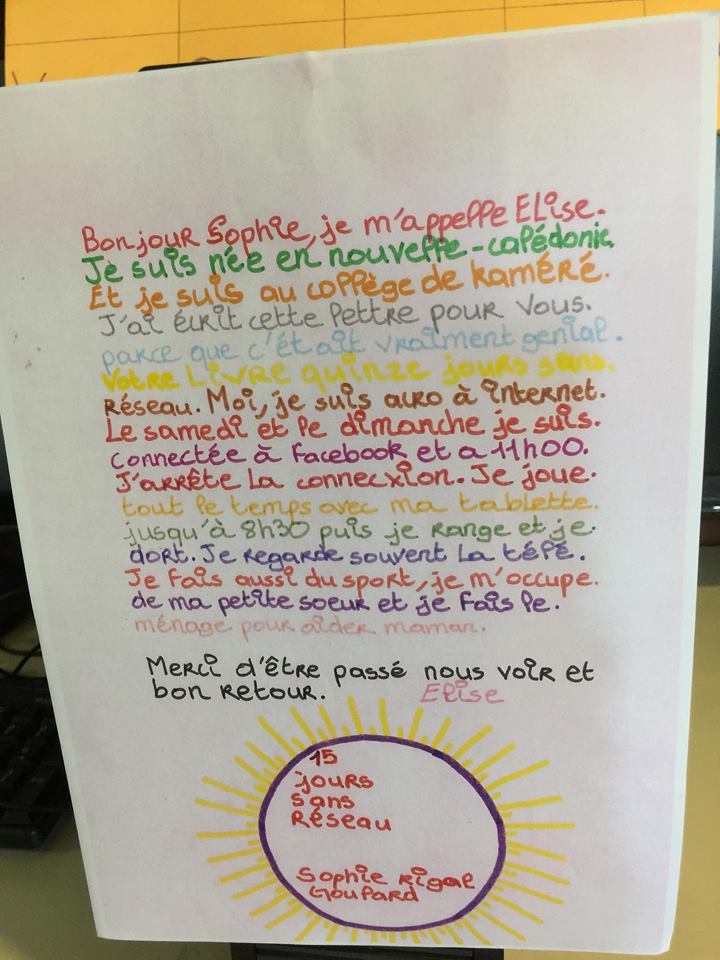 Bonjour Sophie, je m'appelle Elise.
Je suis née en nouvelle-calédonie
Et je suis au collège de kaméré.
J'ai écrit cette lettre pour vous.
parce que c'était vraiment genial.
votre Livre quinze jours sans.
réseau. Moi, je suis acro à internet.
Le samedi et le dimanche je suis.
connectée à Facebook et a 11h00.
J'arrête la connecxion. Je joue.
tout le temps avec ma tablette.
jusqu'à 8h30 puis je range et je.
dort. Je regarde souvent la télé.
Je fais aussi du sport, je m'occupe.
de ma petite soeur et je fais le.
ménage pour aider maman.
Merci d'être passé nous voir et
bon retour.
Elise
15
jours
sans
Réseau
Sophie Rigal
Goulard